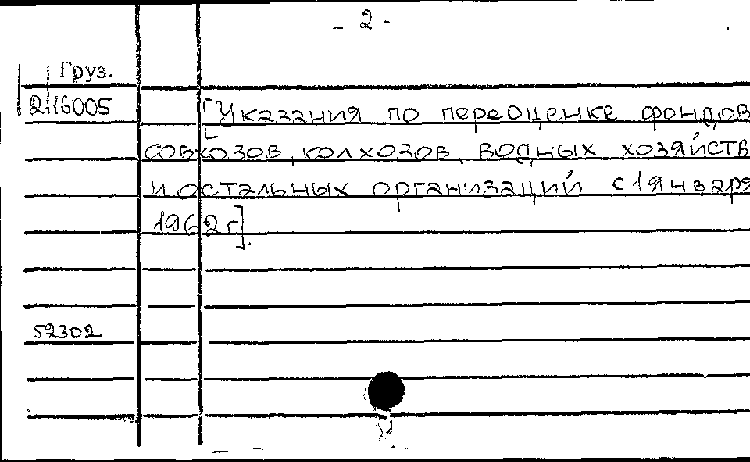 - 2 -
Груз.
2116005
[Указания по переоценке фондов
совхозов, колхозов, водных хозяйств
и остальных организаций с 1 января
1962 г].
52302